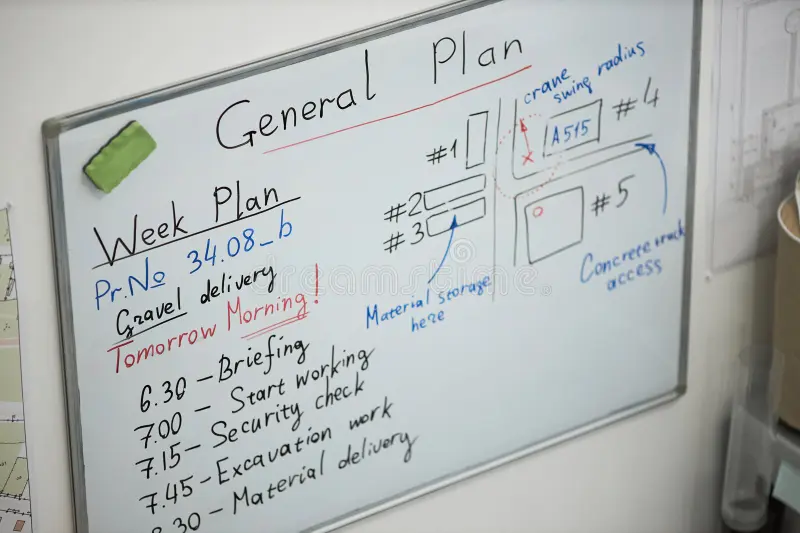 General Plan
Week Plan
Pr.№ 34.08_b
Gravel delivery
Tomorrow Morning!
6.30 – Briefing
7.00 – Start working
7.15 – Security check
7.45 – Excavation work
8.30 – Material delivery
#1
#2
#3
Material storage
here
crane
swing radius
A515
#4
#5
Concrete truck
access
dreamstime